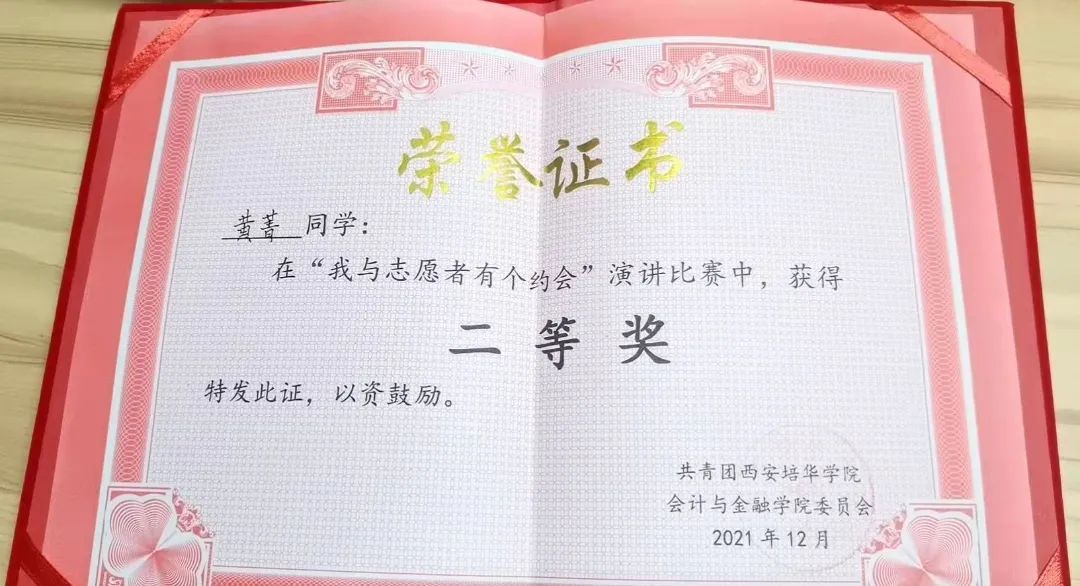 荣誉证书
黄菁 同学：
在“我与志愿者有个约会”演讲比赛中，获得
二等奖
特发此证，以资鼓励。
共青团西安培华学院
会计与金融学院委员会
2021年12月